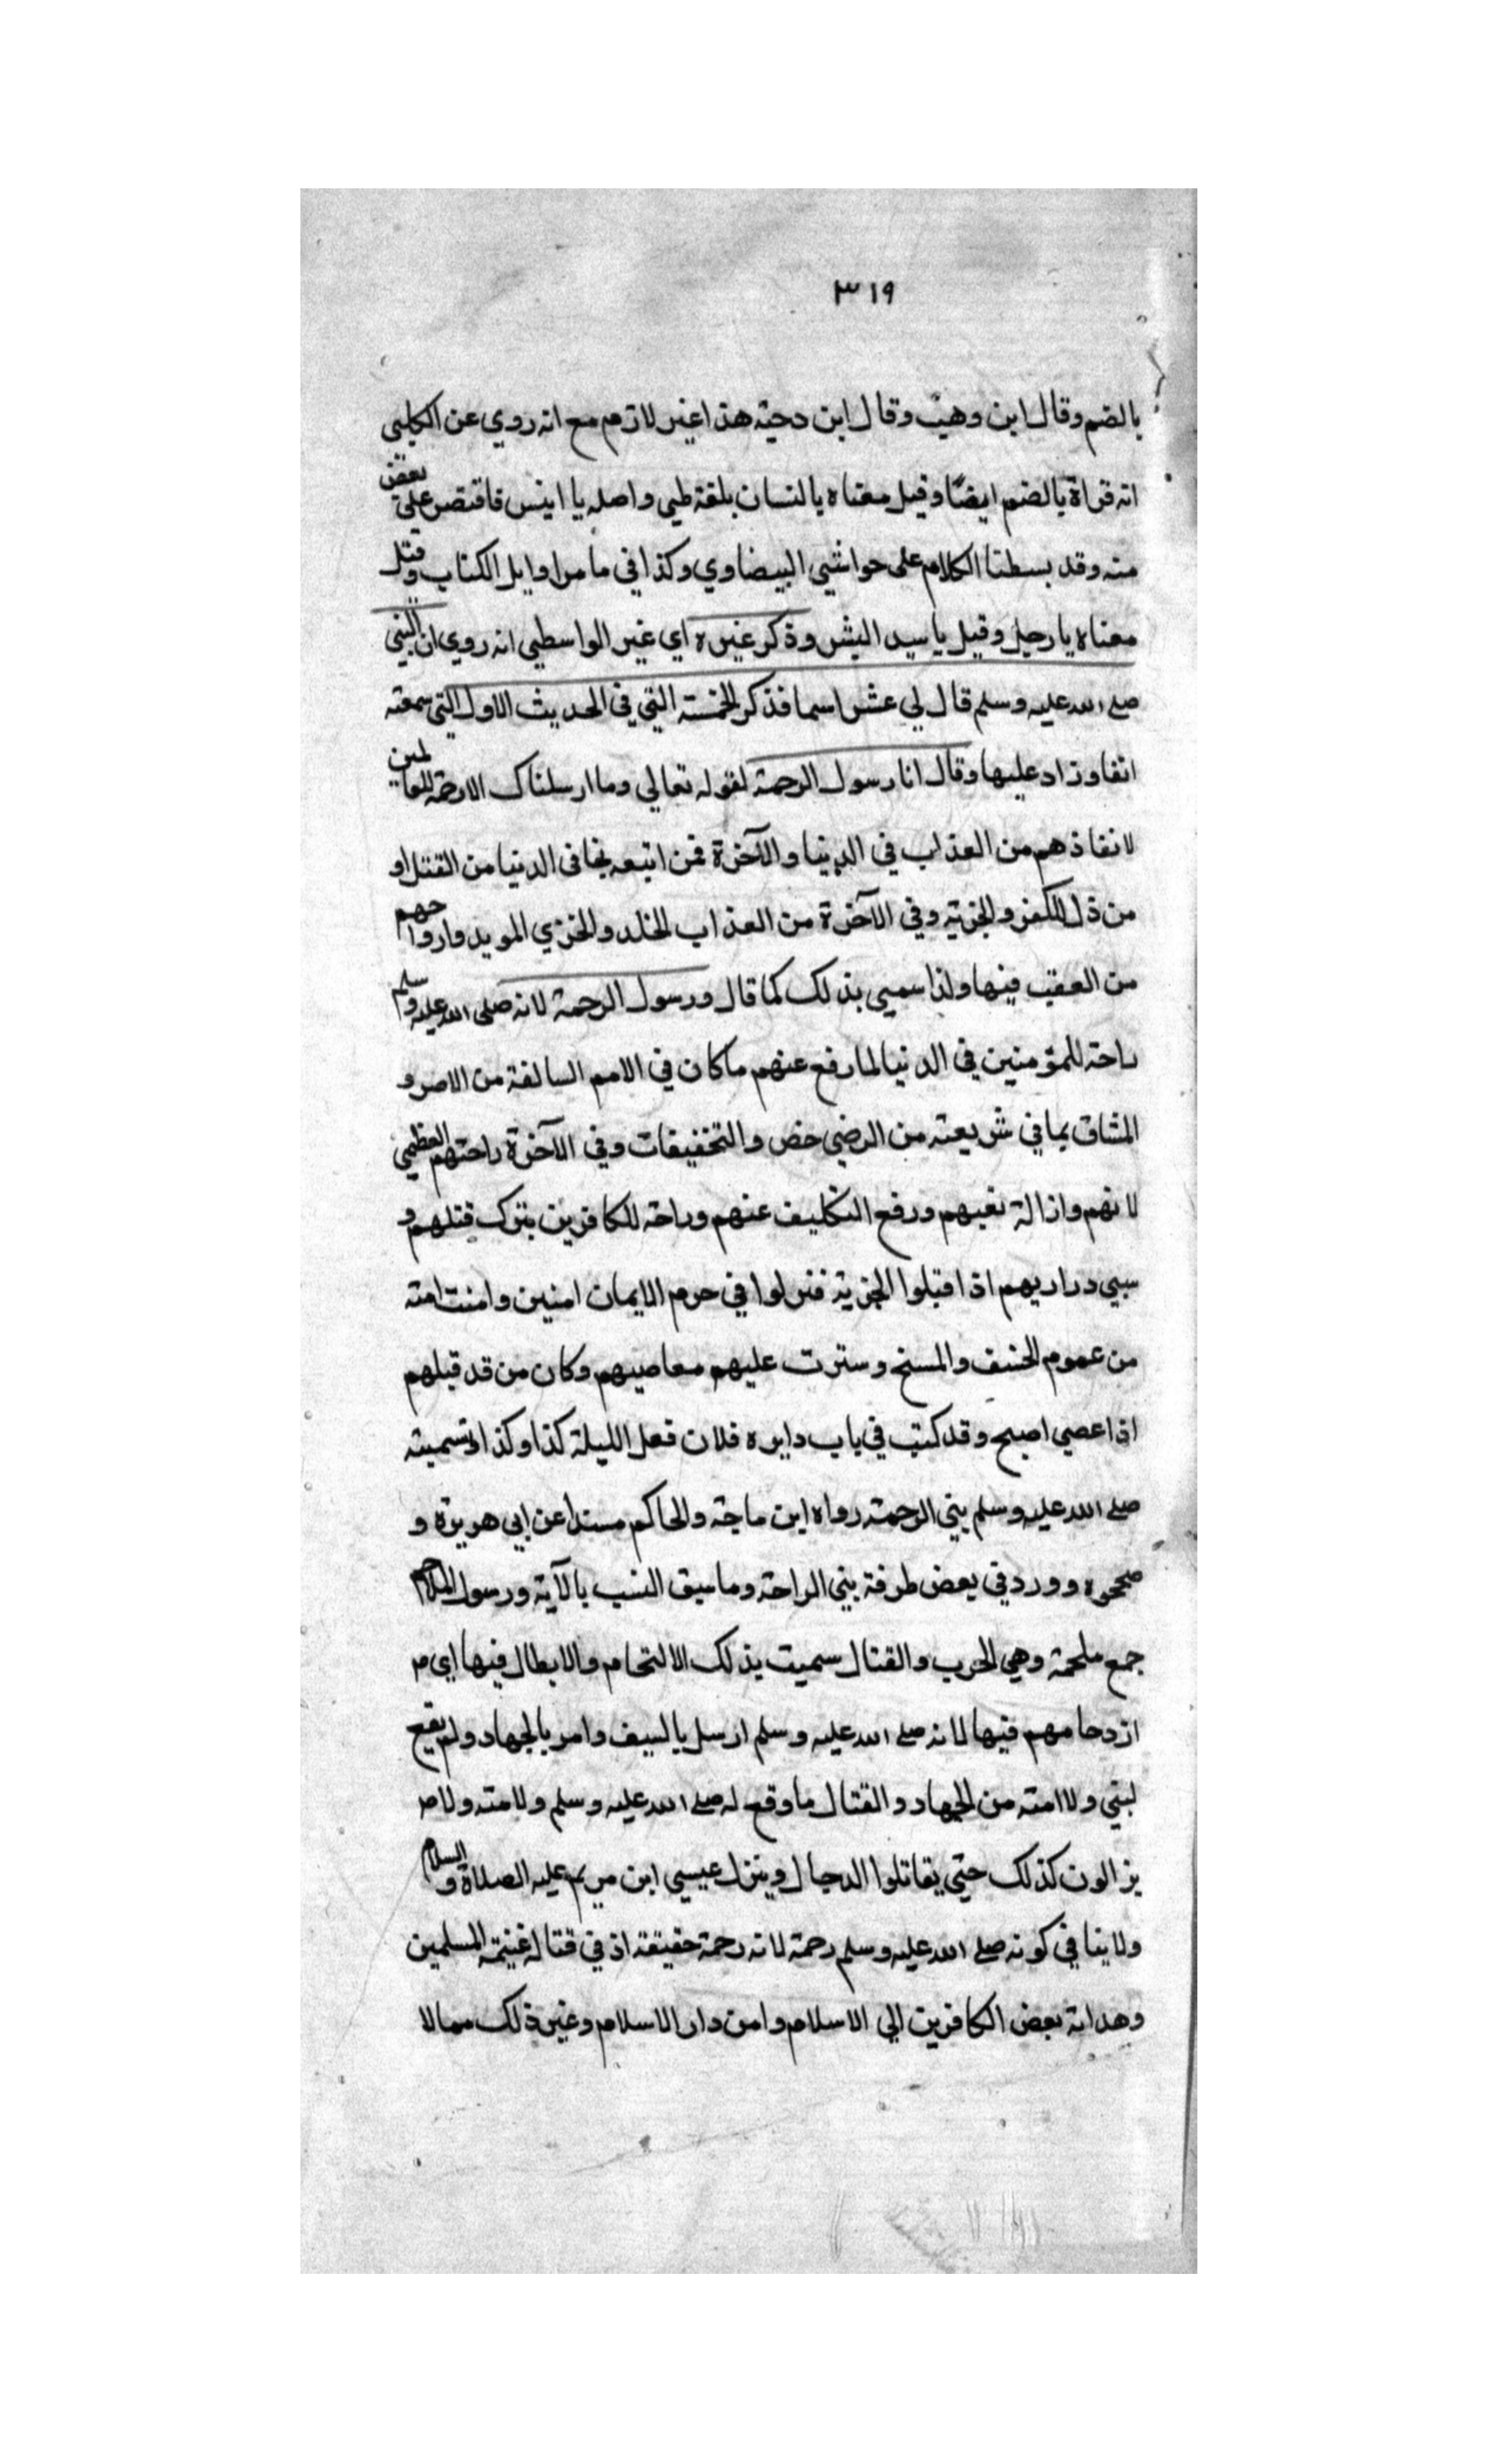 ٣١٩
بالضم وقال ابن وهب وقال ابن دحية هذا غير لازم مع انه روي عن الكلبي
انه قراة بالضم ايضًا وقيل معناه يا لنسان بلغة طيي واصله يا اينس فاقتصر على بعض
منه وقد بسطنا الكلام على حواشي البيضاوي وكذا في ما مر اوايل الكتاب وقيل
معناه يا رجل وقيل يا سيد البشر وذكر غيره اي غير الواسطي انه روي ان النبي
صلى الله عليه وسلم قال لي عشر اسما فذكر الخمسة التي في الحديث الاول التي سمعته
انفا وزاد عليها وقال انا رسول الرحمة لقوله تعالي وما ارسلناك الا رحمة للعالمين
لانقاذهم من العذاب في الدنيا والآخرة فمن اتبعه نجا في الدنيا من القتل او
من ذل الكفر والجزية وفي الآخرة من العذاب المخلد والخزي الموبد وارواحهم
من العقب فيها ولذا سمي بذلك كما قال ورسول الرحمة لانه صلى الله عليه وسلم
راحة للمؤمنين في الدنيا لما رفع عنهم ما كان في الامم السالفة من الاصر و
المشاق بما في شريعته من الرضي خص والتخفيفات وفي الآخرة راحتهم العظمي
لانهم وازالة نعيهم ورفع التكليف عنهم وراحة للكافرين بترك قتلهم و
سبي دراريهم اذا قبلوا الجزية فنزلوا في حرم الايمان امنين وامنت امته
من عموم الخسف والمسخ وسترت عليهم معاصيهم وكان من قد قبلهم
اذا عصي اصبح وقد كتب في باب دايره فلان فعل الليلة كذا وكذا وتسميته
صلى الله عليه وسلم بنبي الرحمة رواه ابن ماجة والحاكم مسندا عن ابي هريرة و
صححوه وورد في بعض طرفة بنبي الراحة وما سبق النسب بالآية ورسول الملاحم
جمع ملحمة وهي الحرب والقتال سميت بذلك الالتحام والابطال فيها اي م
ازدحامهم فيها لانه صلى الله عليه وسلم ارسل بالسيف وامر بالجهاد ولم يقع
لنبي ولا امته من الجهاد والقتال ما وقع له صلى الله عليه وسلم ولامته ولا م
يزالون كذلك حتي يقاتلوا الدجال وينزل عيسي ابن مريم عليه الصلاة والسلام
ولا ينافي كونه صلى الله عليه وسلم رحمة لانه رحمة حقيقة اذ في قتاله غنيمة المسلمين
وهداية بعض الكافرين الي الاسلام وامن دار الاسلام وغير ذلك مما لا